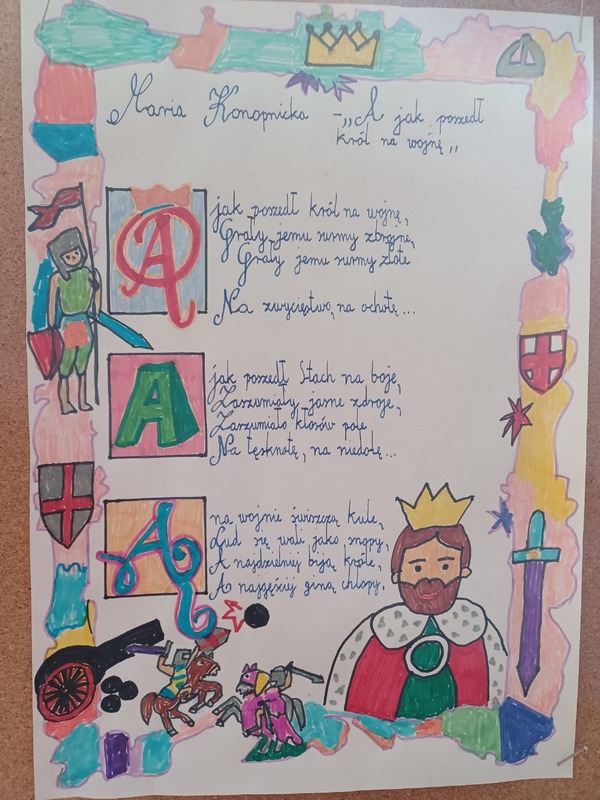 Maria Konopnicka - „A jak poszedł
król na wojnę „
A jak poszedł król na wojnę,
Grały jemu surmy zbrojne,
Grały jemu surmy złote
Na zwycięstwo, na ochotę...
A jak poszedł Stach na boje,
Zaszumiały jasne zdroje,
Zaszumiało kłosów pole
Na tęsknotę, na niedolę...
A na wojnie świszczą kule,
Lud się wali jako snopy,
A najdzielniej biją króle,
A najgęściej giną chłopy.